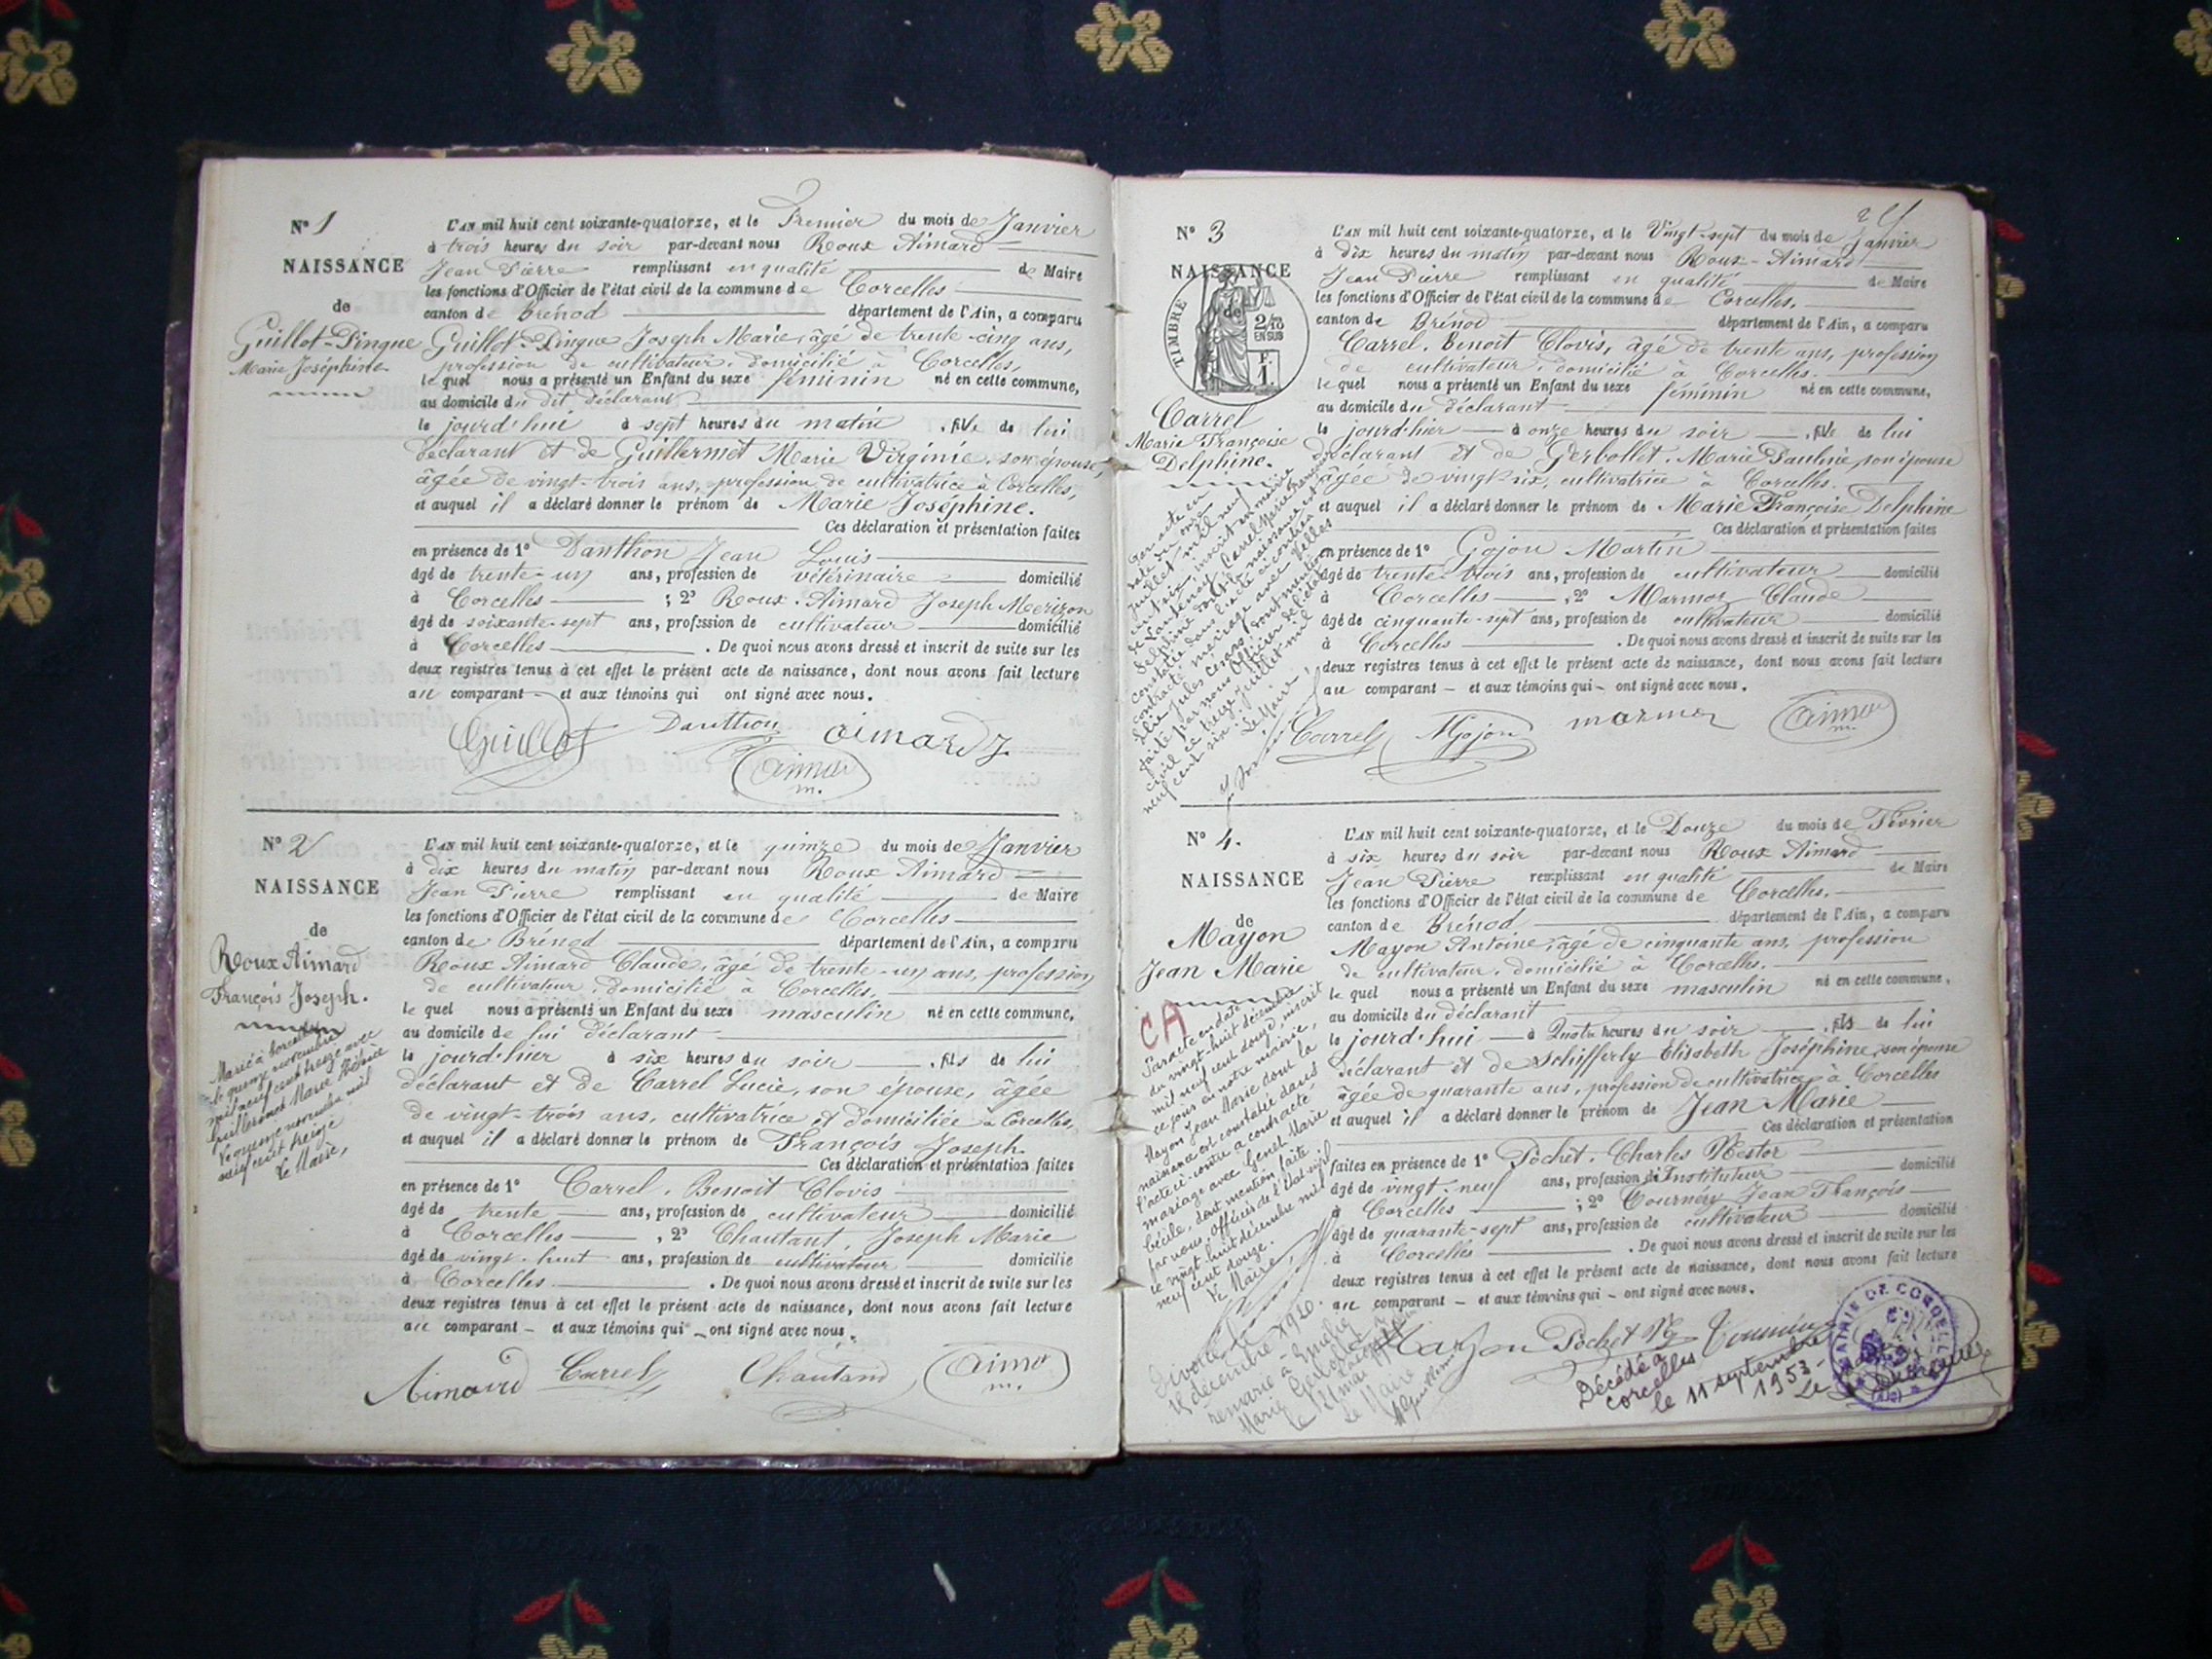 N° 1
NAISSANCE
de
Guillot-Pingue
Marie Joséphine
L'AN mil huit cent soixante-quatorze, et le Premier du mois de Janvier
à trois heures du soir par-devant nous Roux Aimard
Jean Pierre remplissant en qualité de Maire
les fonctions d'Officier de l'état civil de la commune de Corcelles
canton de Brénod département de l'Ain, a comparu
Guillot-Pingue Joseph Marie, âgé de trente-cinq ans,
profession de cultivateur, domicilié à Corcelles,
lequel nous a présenté un Enfant du sexe féminin né en cette commune,
au domicile du dit déclarant
le jourd'hui à sept heures du matin, fille de lui
déclarant et de Guillermet Marie Virginie, son épouse,
âgée de vingt-trois ans, profession de cultivatrice à Corcelles,
et auquel il a déclaré donner le prénom de Marie Joséphine.
Ces déclaration et présentation faites
en présence de 1° Danthon Jean Louis
âgé de trente-un ans, profession de vétérinaire domicilié
à Corcelles ; 2° Roux-Aimard Joseph Merizon
âgé de soixante-sept ans, profession de cultivateur domicilié
à Corcelles . De quoi nous avons dressé et inscrit de suite sur les
deux registres tenus à cet effet le présent acte de naissance, dont nous avons fait lecture
au comparant et aux témoins qui ont signé avec nous.
Guillot Danthon aimard J
aimard
m.
N° 2
NAISSANCE
de
Roux Aimard
François Joseph.
Marié à Corcelles
le quinze novembre
mil neuf cent treize avec
Guillermet Marie
Le quinze novembre mil
neuf cent treize
Le Maire,
L'AN mil huit cent soixante-quatorze, et le quinze du mois de Janvier
à dix heures du matin par-devant nous Roux Aimard
Jean Pierre remplissant en qualité de Maire
les fonctions d'Officier de l'état civil de la commune de Corcelles
canton de Brénod département de l'Ain, a comparu
Roux Aimard Claude, âgé de trente-un ans, profession
de cultivateur, domicilié à Corcelles,
lequel nous a présenté un Enfant du sexe masculin né en cette commune,
au domicile de lui déclarant
le jourd'hier à six heures du soir, fils de lui
déclarant et de Carrel Lucie, son épouse, âgée
de vingt-trois ans, cultivatrice et domiciliée à Corcelles,
et auquel il a déclaré donner le prénom de François Joseph
Ces déclaration et présentation faites
en présence de 1° Carrel, Benoit Clovis
âgé de trente ans, profession de cultivateur domicilié
à Corcelles , 2° Chautant, Joseph Marie
âgé de vingt-huit ans, profession de cultivateur domicilié
à Corcelles . De quoi nous avons dressé et inscrit de suite sur les
deux registres tenus à cet effet le présent acte de naissance, dont nous avons fait lecture
au comparant - et aux témoins qui - ont signé avec nous.
Aimard Carrel Chautand aimard
m.
N° 3
NAISSANCE
de
TIMBRE
2/10
EN SUS
F.
1.
Carrel
Marie Françoise
Delphine.
Par acte en
date du onze
Juillet mil neuf
cent six, inscrit en mairie
de Nantenay, Carrel Marie Françoise
Delphine dont la naissance est
constatée dans l'acte ci-contre a
contracté mariage avec Velles
Elie Jules César, dont mention
faite par nous Officier de l'état
civil ce treize Juillet mil
neuf cent six. Le Maire,
L'AN mil huit cent soixante-quatorze, et le Vingt-sept du mois de Janvier
à dix heures du matin par-devant nous Roux-Aimard
Jean Pierre remplissant en qualité de Maire
les fonctions d'Officier de l'état civil de la commune de Corcelles.
canton de Brénod département de l'Ain, a comparu
Carrel, Benoit Clovis, âgé de trente ans, profession
de cultivateur, domicilié à Corcelles.
lequel nous a présenté un Enfant du sexe féminin né en cette commune,
au domicile du déclarant
le jourd'hier à onze heures du soir, fille de lui
déclarant et de Gerbollet, Marie Pauline son épouse
âgée de vingt six, cultivatrice à Corcelles.
et auquel il a déclaré donner le prénom de Marie Françoise Delphine
Ces déclaration et présentation faites
en présence de 1° Gojon Martin
âgé de trente-trois ans, profession de cultivateur domicilié
à Corcelles , 2° Marmor Claude
âgé de cinquante-sept ans, profession de cultivateur domicilié
à Corcelles . De quoi nous avons dressé et inscrit de suite sur les
deux registres tenus à cet effet le présent acte de naissance, dont nous avons fait lecture
au comparant - et aux témoins qui - ont signé avec nous.
Carrel MGojon marmor aimard
m.
N° 4.
NAISSANCE
de
Mayon
Jean Marie
CA
Par acte en date
du vingt-huit décembre
mil neuf cent douze, inscrit
ce jour en notre mairie,
Mayon Jean Marie dont la
naissance est constatée dans
l'acte ci-contre a contracté
mariage avec Genet Marie
Cécile, dont mention faite
par nous, Officier de l'état civil
ce vingt-huit décembre mil
neuf cent douze.
Le Maire,
Divorcé le
décembre 1920
remarié à
Marie
le 21 mai
Le Maire
L'AN mil huit cent soixante-quatorze, et le Douze du mois de Février
à six heures du soir par-devant nous Roux Aimard
Jean Pierre remplissant en qualité de Maire
les fonctions d'Officier de l'état civil de la commune de Corcelles.
canton de Brénod département de l'Ain, a comparu
Mayon Antoine, âgé de cinquante ans, profession
de cultivateur, domicilié à Corcelles.
lequel nous a présenté un Enfant du sexe masculin né en cette commune,
au domicile du déclarant
le jourd'hui à Quatre heures du soir, fils de lui
déclarant et de Schifferly Elisabeth Joséphine, son épouse
âgée de quarante ans, profession de cultivatrice, à Corcelles
et auquel il a déclaré donner le prénom de Jean Marie
Ces déclaration et présentation
faites en présence de 1° Pochet, Charles Nestor
âgé de vingt-neuf ans, profession d'Instituteur domicilié
à Corcelles ; 2° Tournéry Jean François
âgé de quarante-sept ans, profession de cultivateur domicilié
à Corcelles . De quoi nous avons dressé et inscrit de suite sur les
deux registres tenus à cet effet le présent acte de naissance, dont nous avons fait lecture
au comparant - et aux témoins qui - ont signé avec nous.
Mayon Pochet
Décédé à
Corcelles
le 11 septembre
1953
Le Maire
MAIRIE DE CORCELLES
(AIN)